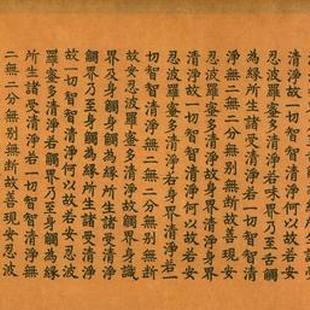 清淨故一切智智清淨何以故若安
忍波羅蜜多清淨若味界乃至舌觸
為緣所生諸受清淨若一切智智清
淨無二無二分無別無斷故善現安
忍波羅蜜多清淨故身界清淨身界
清淨故一切智智清淨何以故若安
忍波羅蜜多清淨若身界清淨若一
切智智清淨無二無二分無別無斷
故安忍波羅蜜多清淨故觸界身識
界及身觸身觸為緣所生諸受清淨
觸界乃至身觸為緣所生諸受清淨
故一切智智清淨何以故若安忍波
羅蜜多清淨若觸界乃至身觸為緣
所生諸受清淨若一切智智清淨無
二無二分無別無斷故善現安忍波